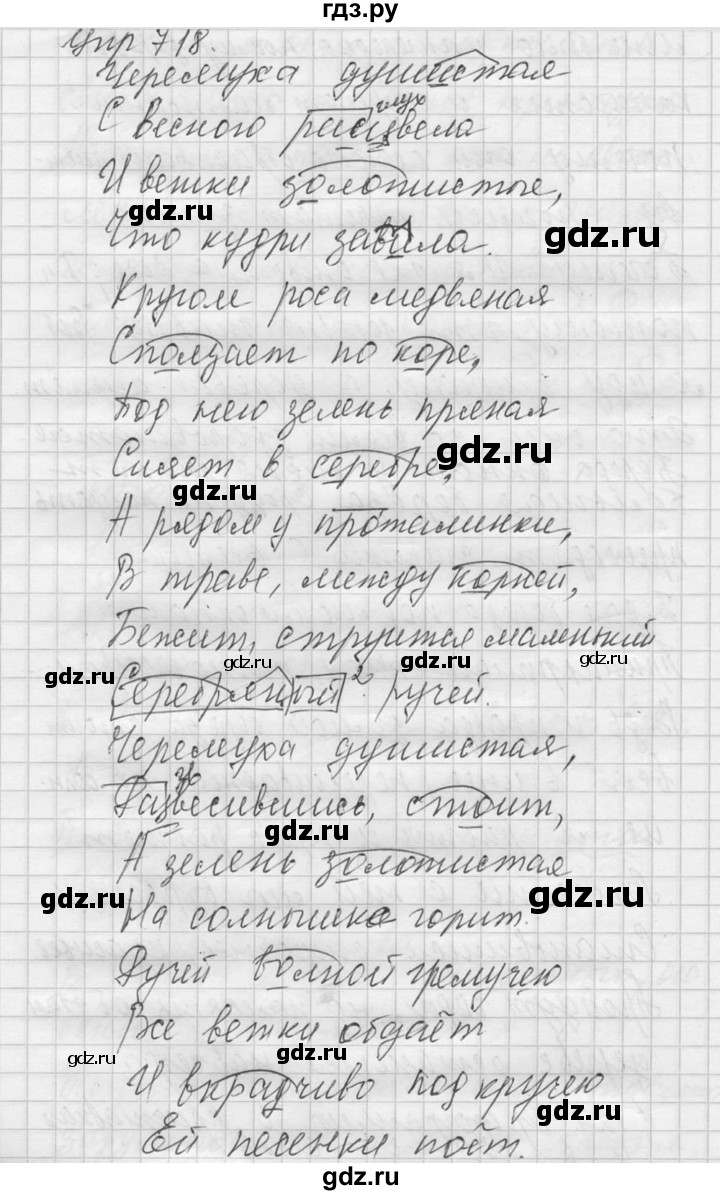 гдз.ру
Упр 718.
Черемуха душистая
глух
С весною расцвела
И ветки золотистые,
gdz.ru
Что кудри завила.
gdz.ru
Кругом роса медвяная
Сползает по коре,
Под нею зелень пряная
gdz.ru
Сияет в серебре,
gdz.ru
А рядом у проталинки,
В траве, между корней,
Бежит, струится маленький
gdz.ru gdz.ru gdz.ru
Серебряный 2 ручей.
Черемуха душистая,
Развесившись, стоит,
gdz.ru
А зелень золотистая
gdz.ru gdz.ru
На солнышке горит.
Ручей волной гремучею
Все ветки обдаёт
gdz.ru gdz.ru
И вкрадчиво под кручею
Ей песенки поёт.
gdz.ru
gdz.ru